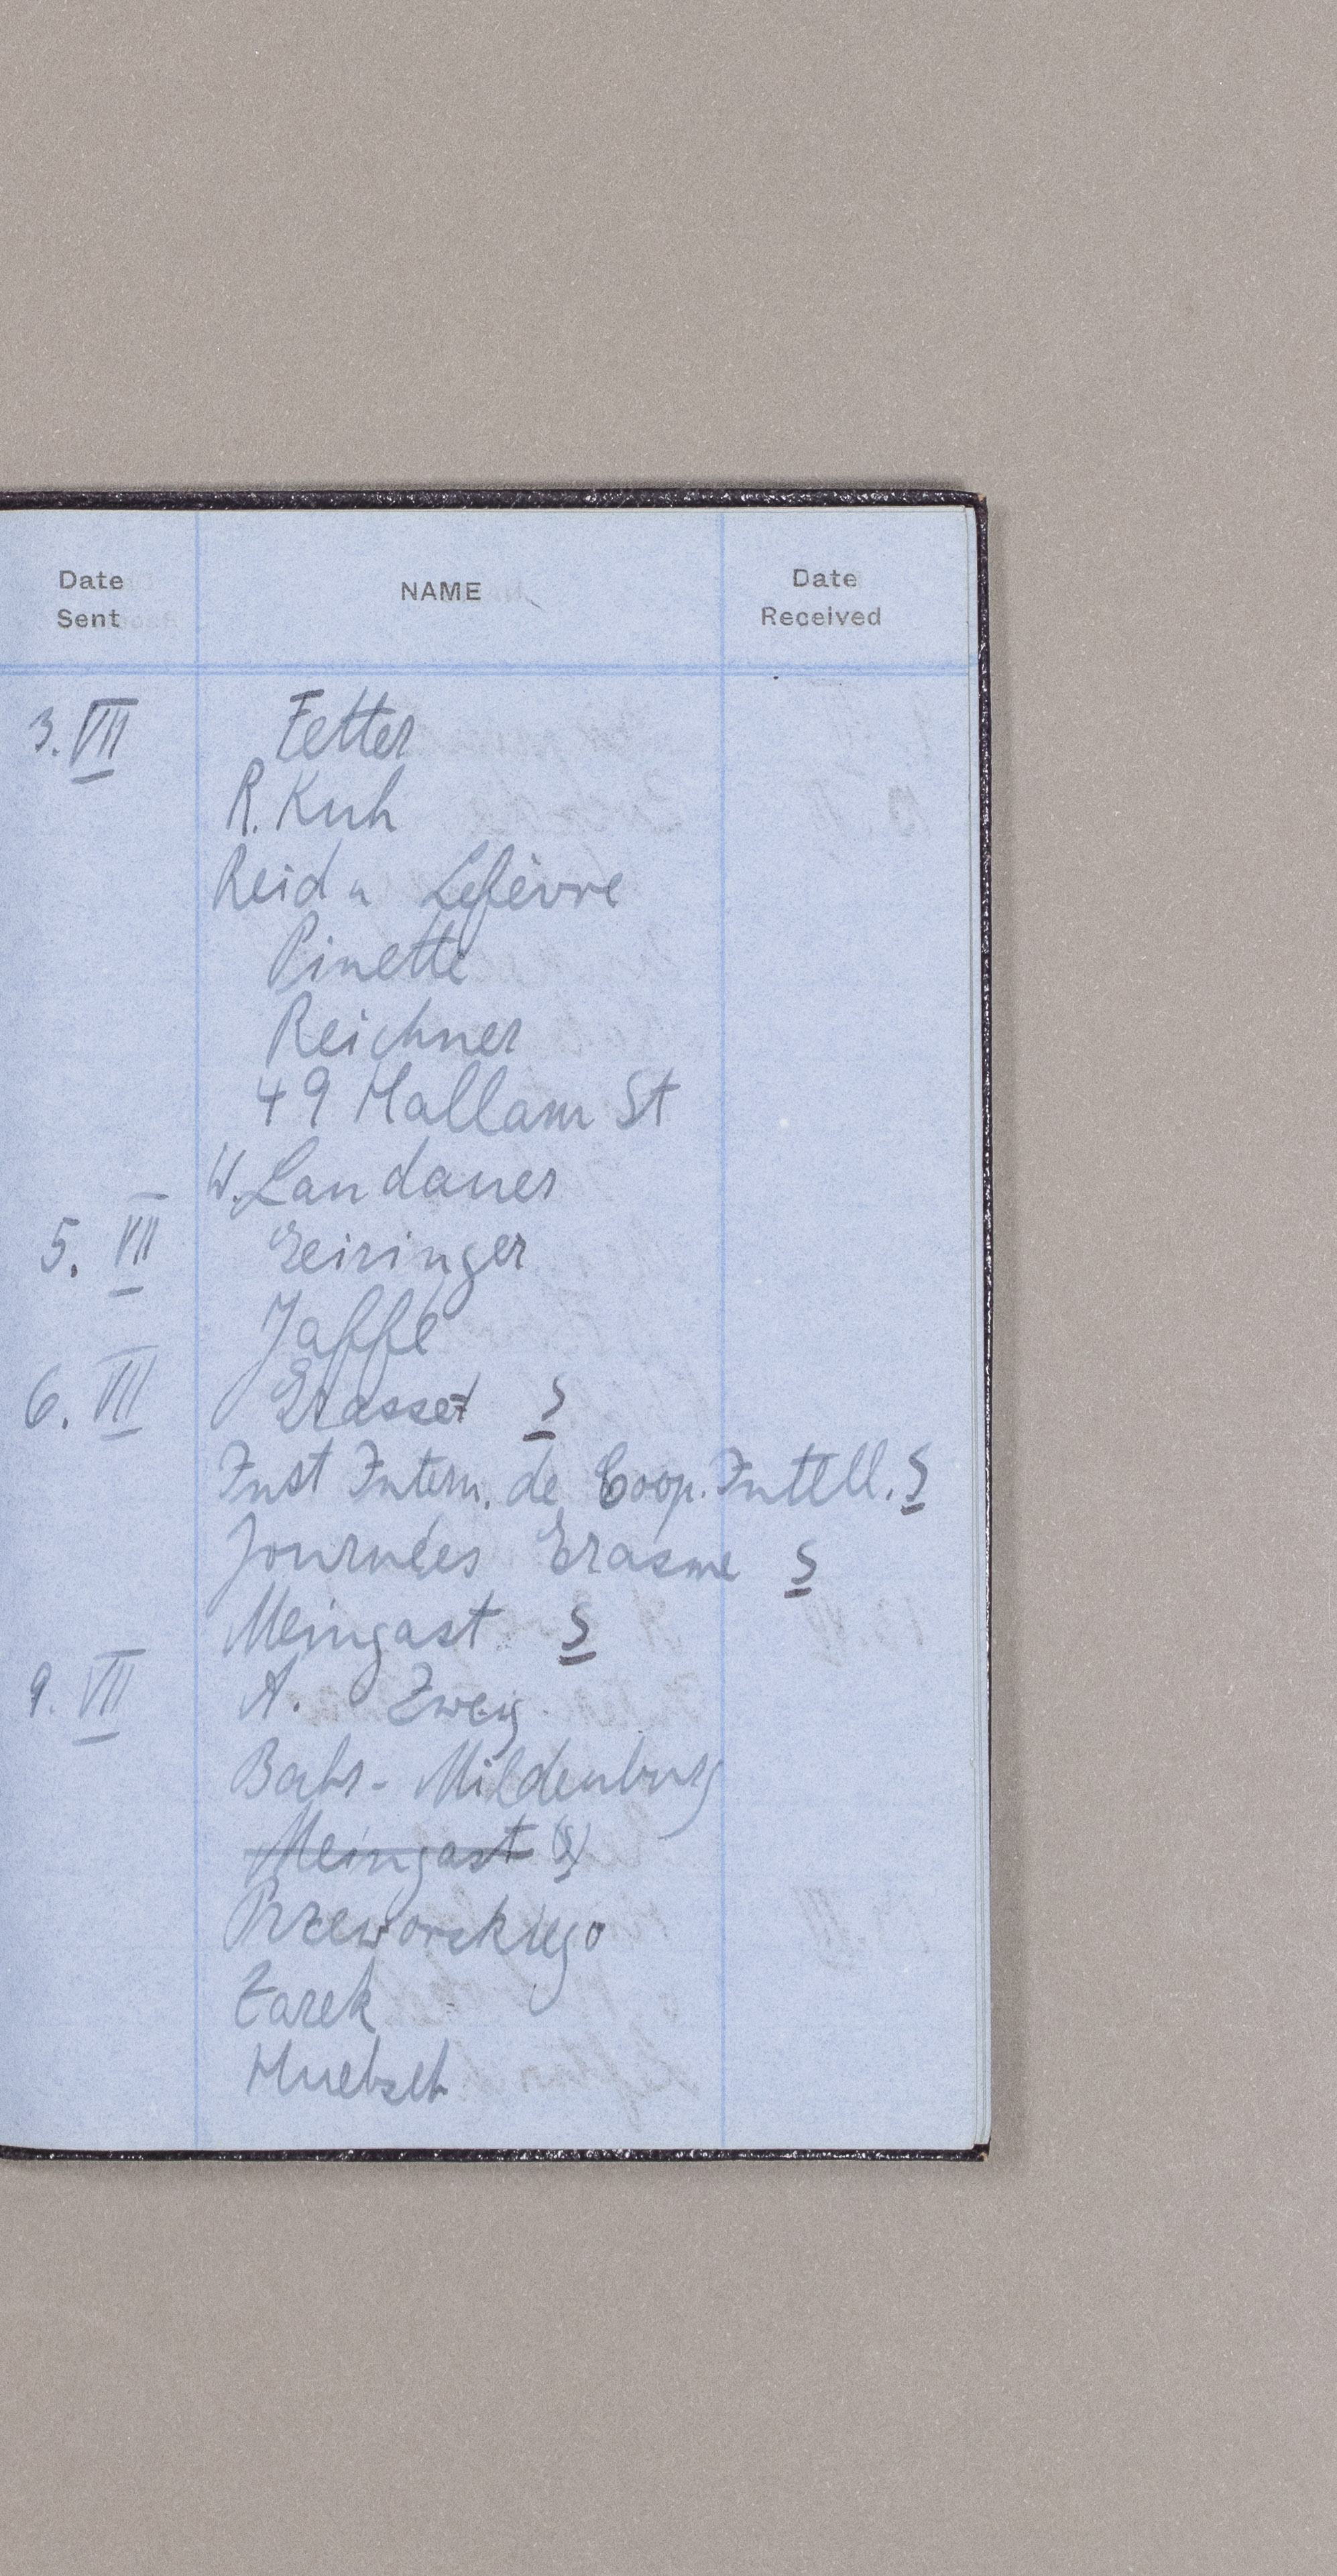 Date Sent NAME Date Received
3. VII Fetter
R. Kuh
Reid u Lefèvre
Pinette
Reichner
49 Hallam St
W. Landauer
5. VII Geiringer
Jaffé
6. VII Grasset S
Inst Intern. de Coop. Intell. S
Journées Erasme S
Meingast S
9. VII A. Zweig
Bahr-Mildenburg
Meingast (S)
Przeworskiego
Zarek
Huebsch